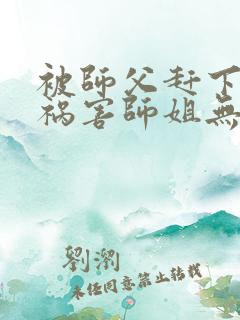 被師父赶下
祸害師姐無
劉瀏
未经同意禁止转载